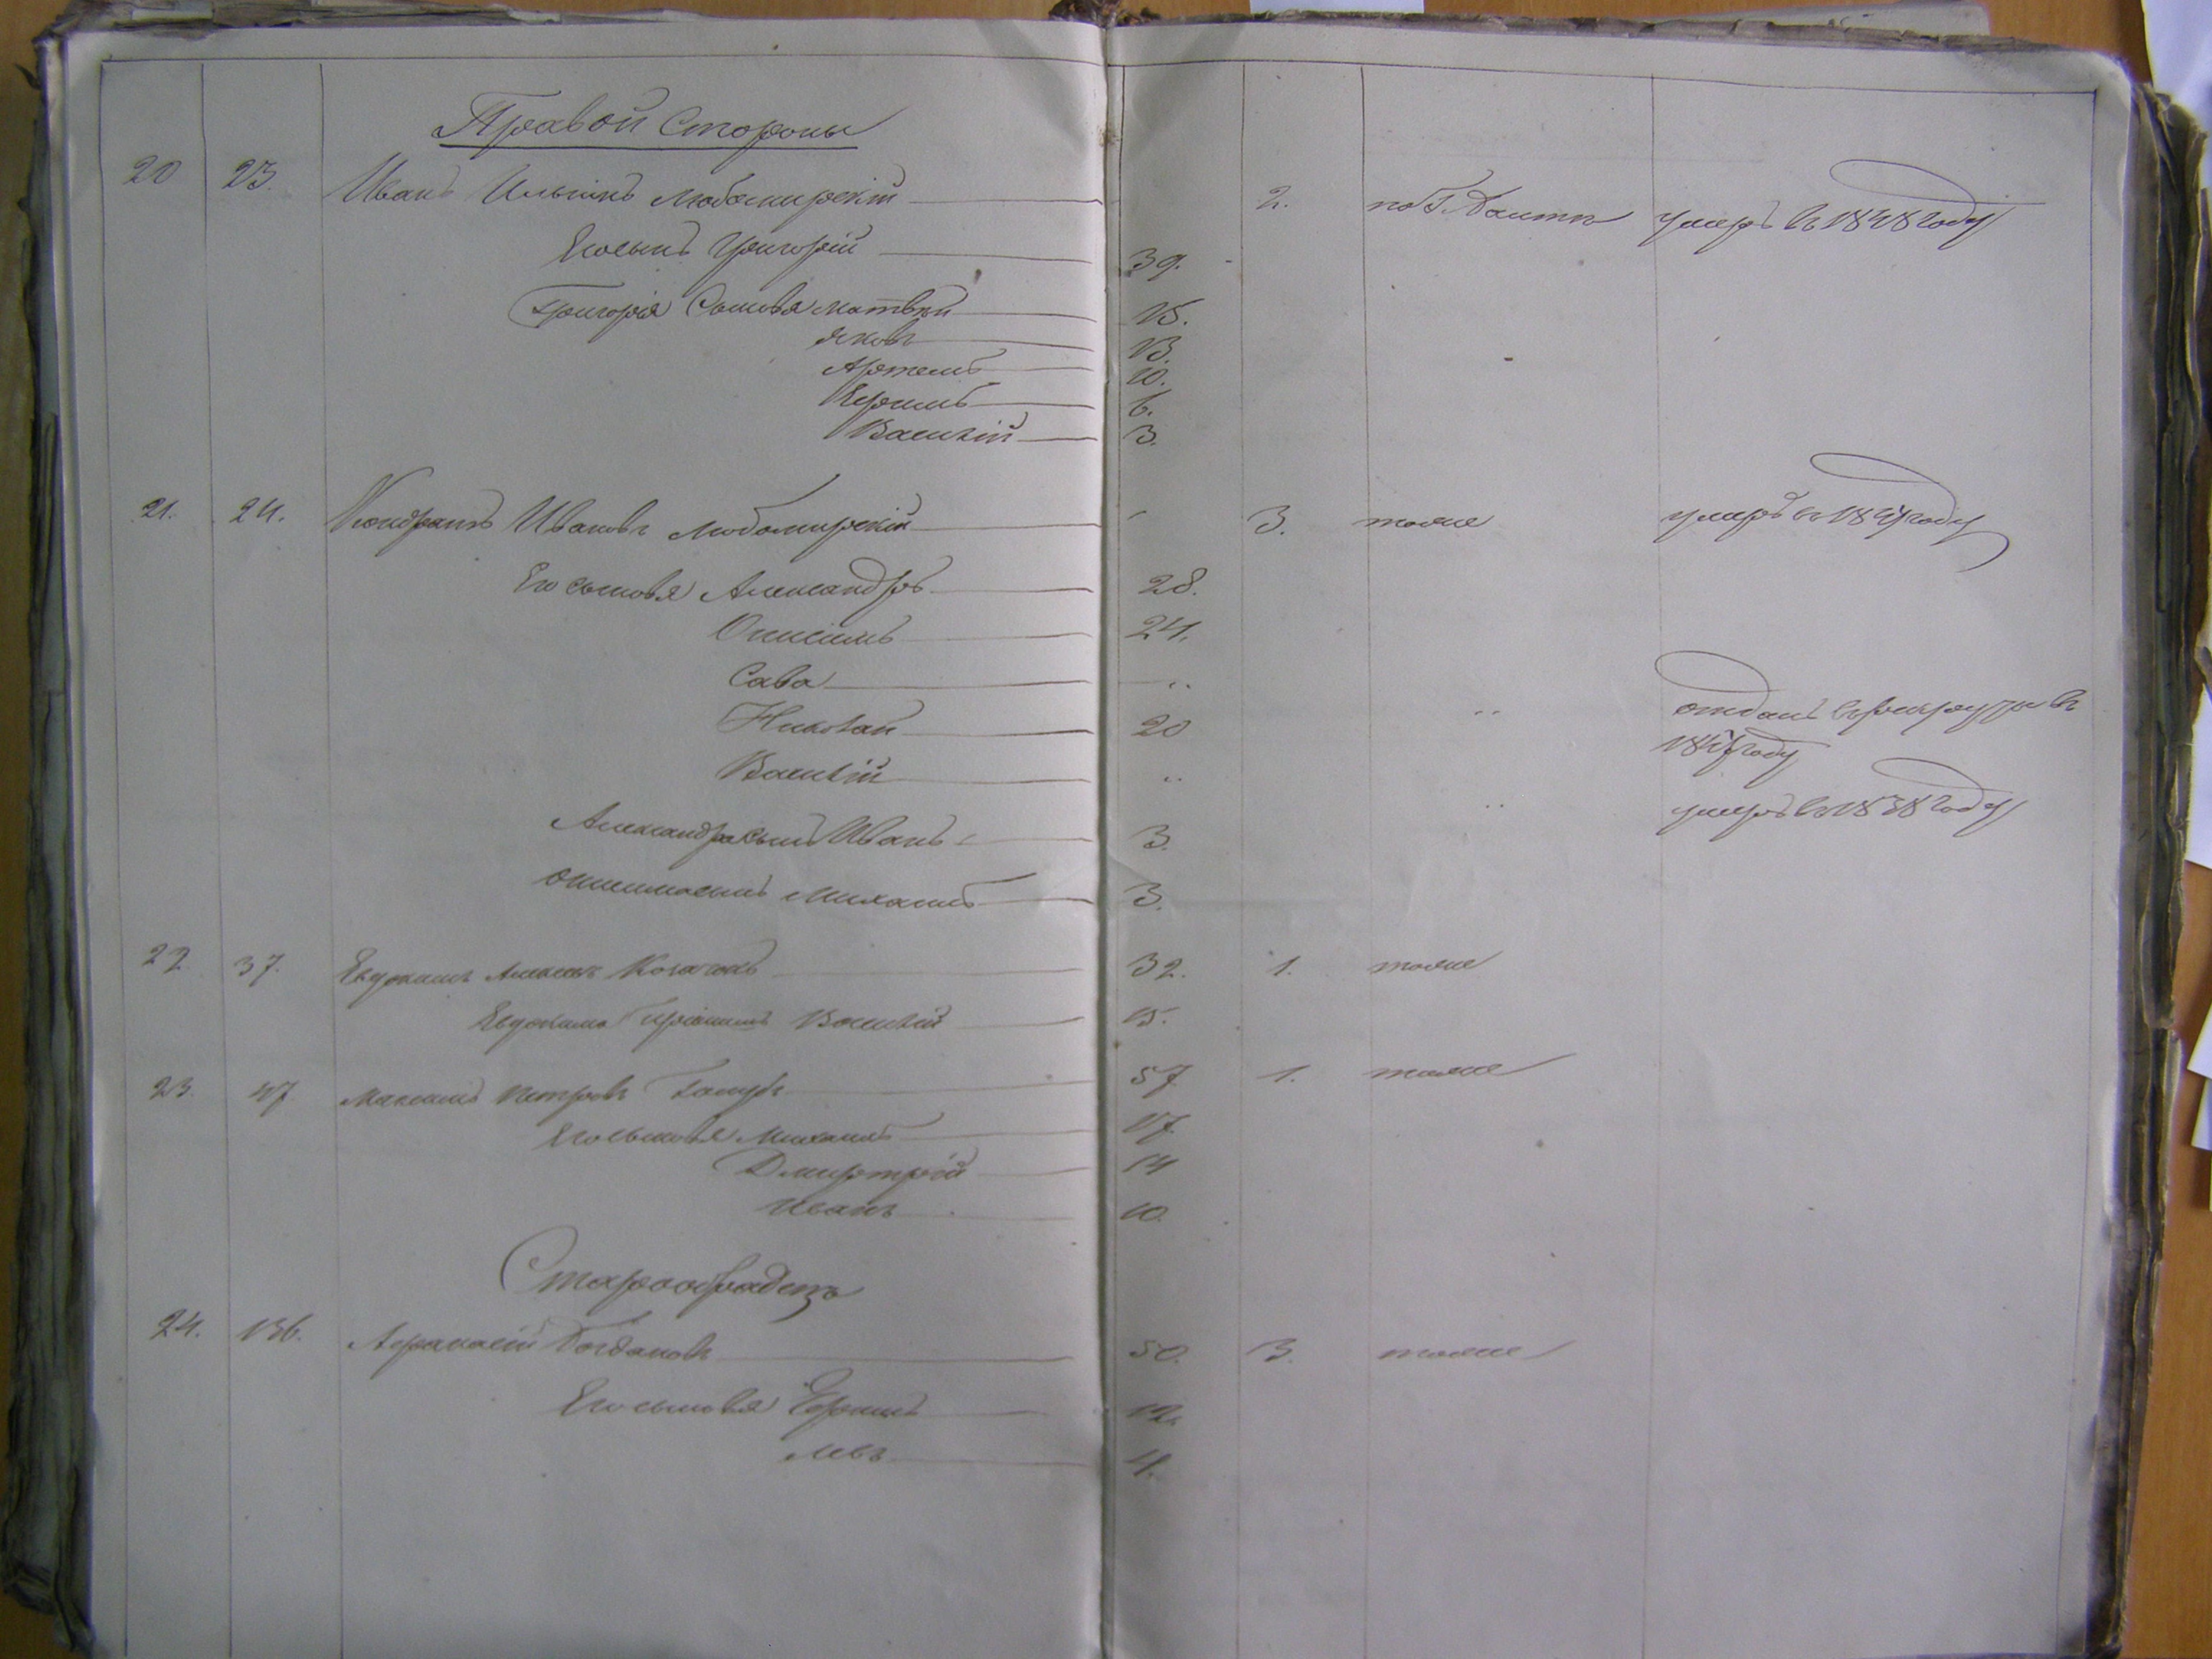 Правой Стороны
20 23. Иванъ Ильинъ Любомирскій 2. умеръ въ 1848 году
Егосынъ Григорій 39.
Григорія Сыновья Матвѣй 15.
Яковъ 13.
Артемъ 10.
Ефимъ 6.
Василій 3.
21. 24. Кондратъ Ивановъ Любомирскій 3. тоже умеръ въ году
Его сыновья Александръ 28.
Онисимъ 24.
Сава ..
Николай 20 .. отданъ въ рекруты въ
году
Василій .. .. умеръ въ 1838 году
Александра сынъ Иванъ 3.
Онисима сынъ Михаилъ 3.
22 37. Евдокимъ Алексѣевъ 32. 1. тоже
Евдокима Василій 15.
23. 47 Максимъ Петровъ Голубъ 57 1. тоже
Его сыновья Михаилъ 17.
Дмиртрій 14
Иванъ 10.
Старообрадецъ
24. 136. Афанасій Богдановъ 50. 3. тоже
Его сыновья Ефимъ 12.
Левъ 4.